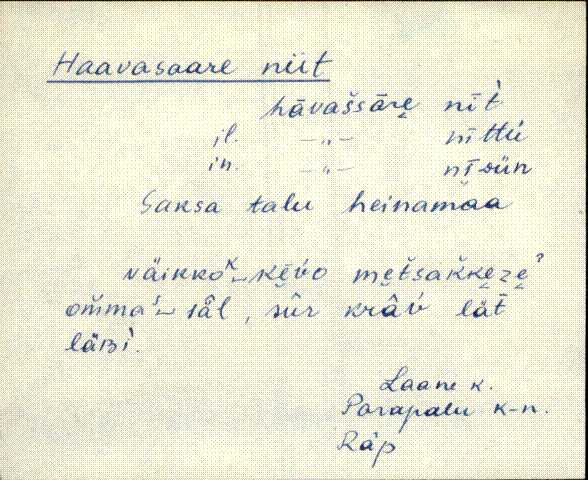 Haavasaare niit
hāvašsāre̮ nīt̀
il. —„— nīttú
in. —„— nīsün
Saksa talu heinamaa
väikkoᴷ‿kēv́o me̮tšakke̮ze̮ˀ
om̆maˢ‿sâl, sûr krâv́ lät̄
läʙì.
Laane k.
Parapalu k-n.
Räp